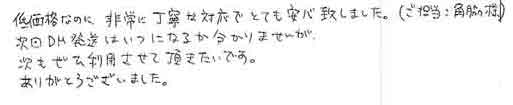 低価格なのに非常に丁寧な対応でとても安心致しました。(ご担当:角脇の様)
次回DH発送はいつになるか分かりませんが、
次もぜひ利用させて頂きたいです。
ありがとうございました。